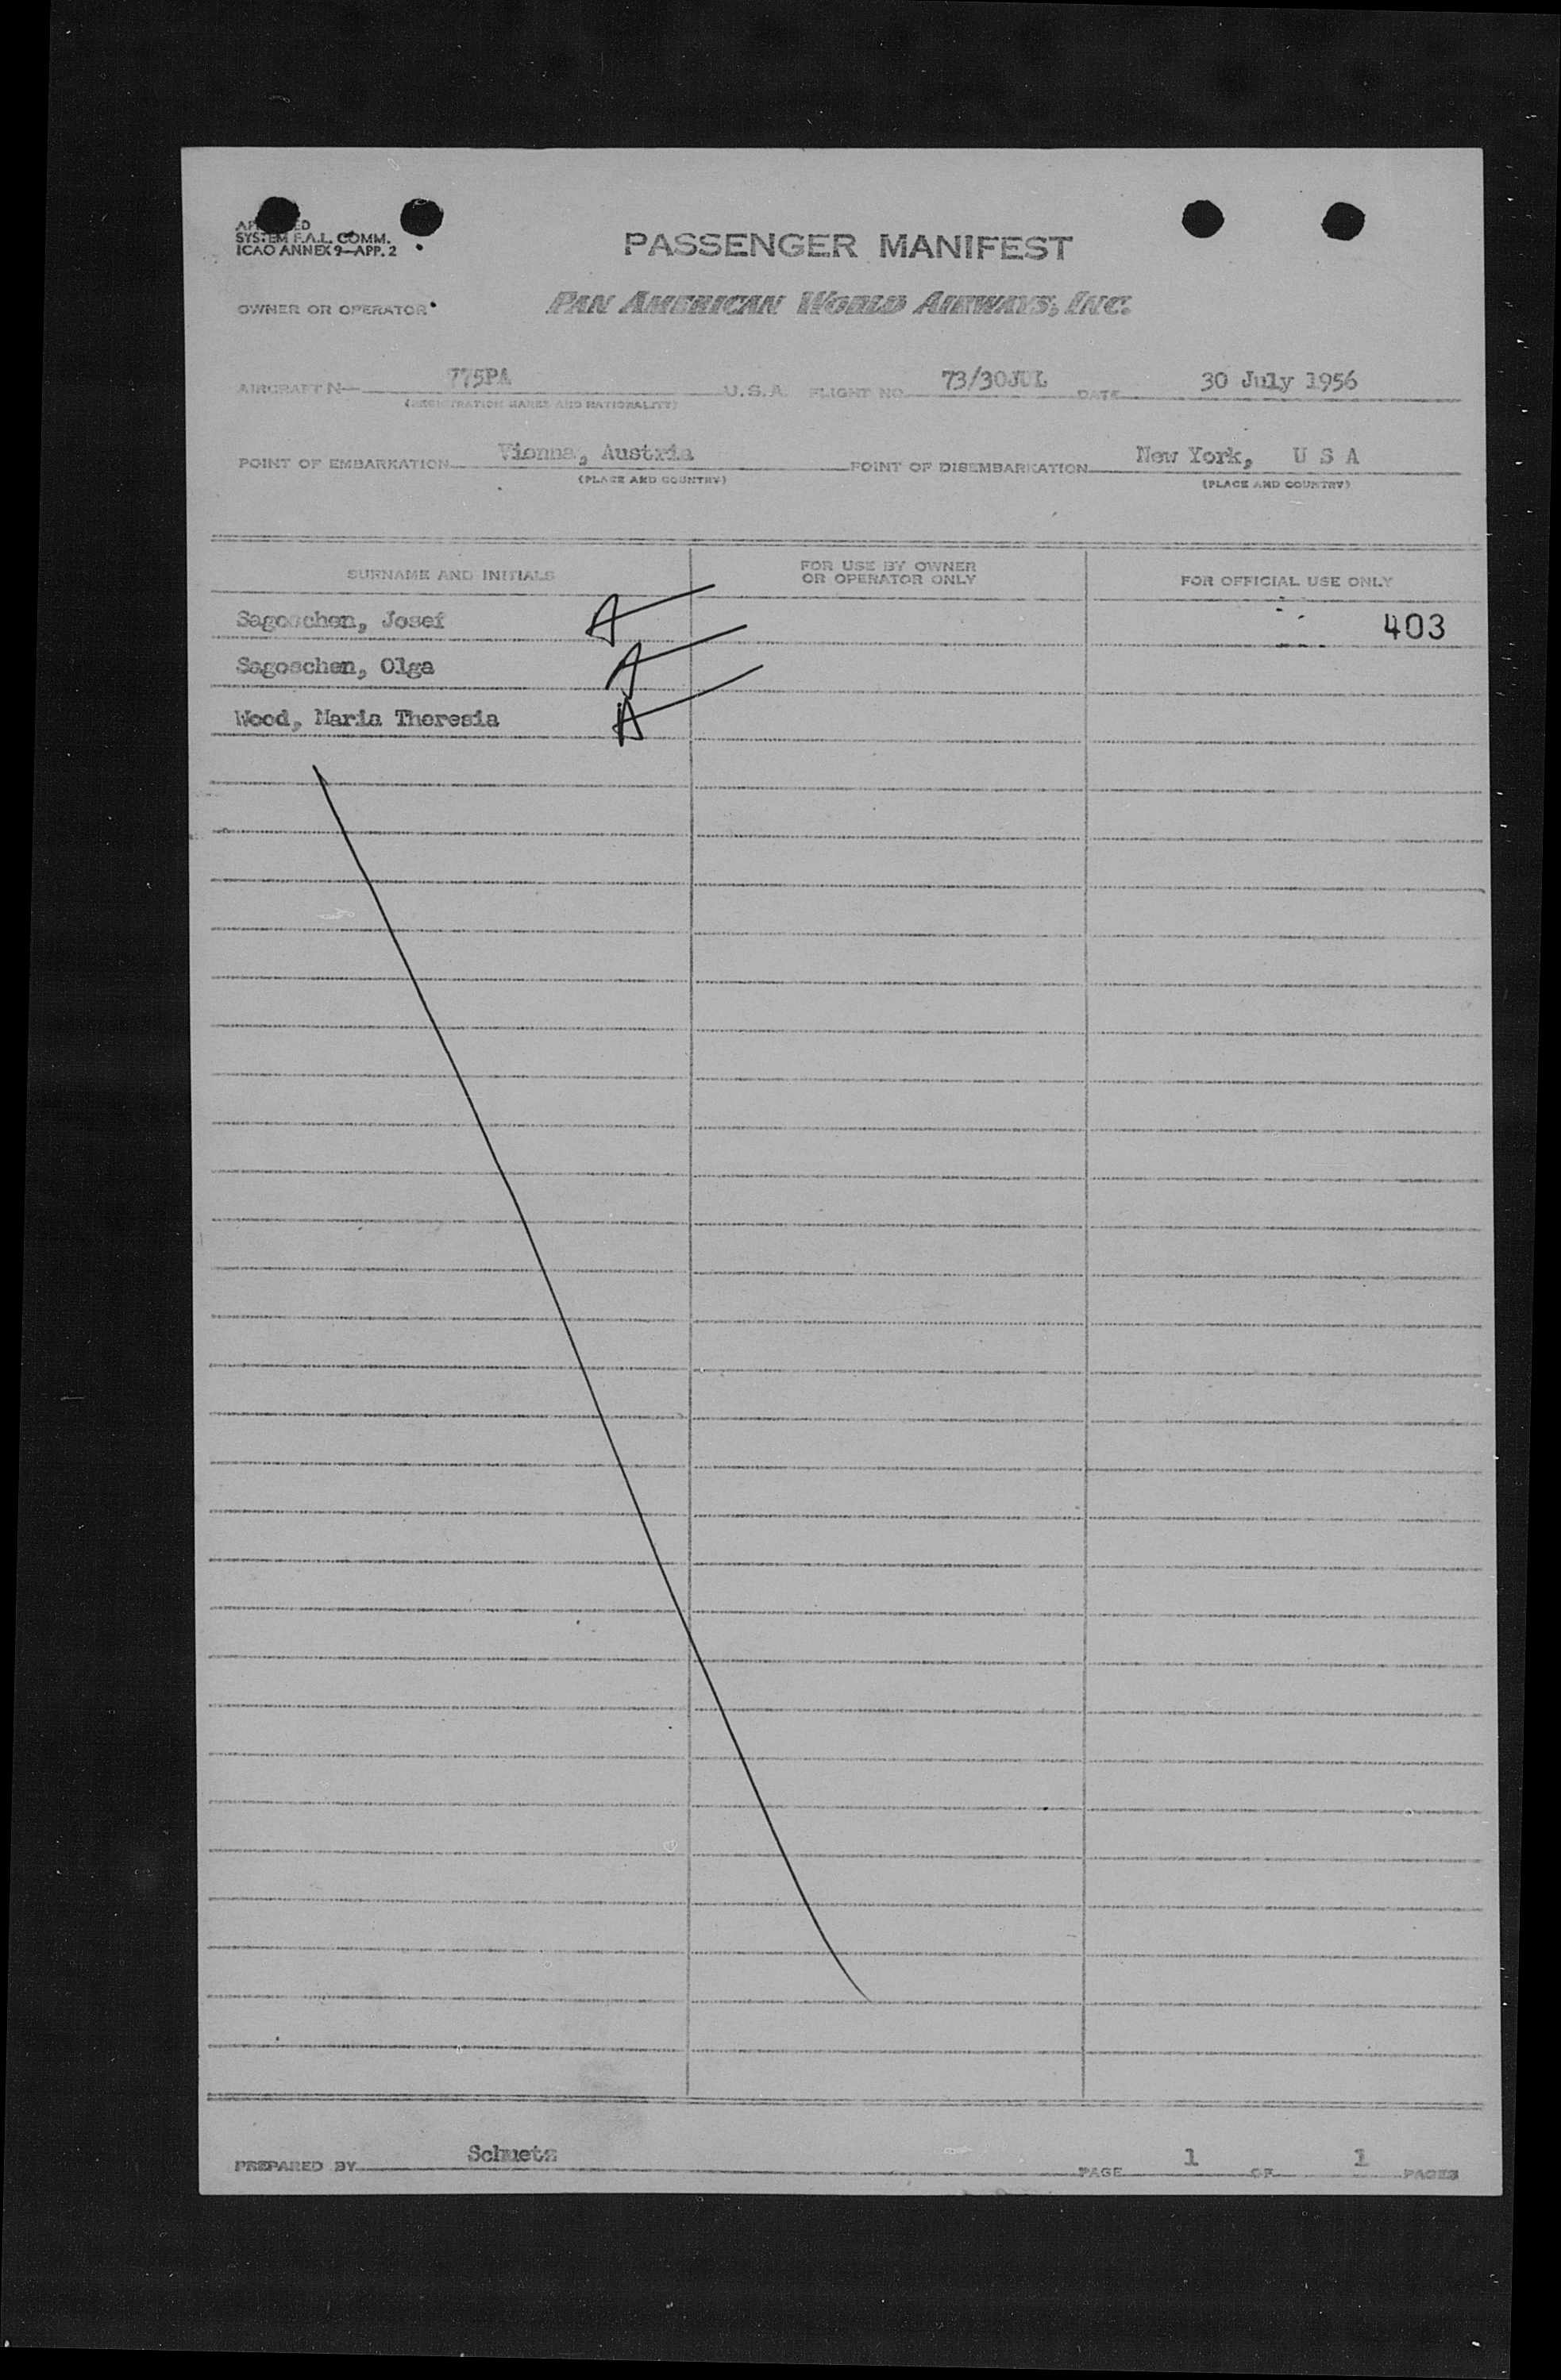 AP ED
SYSTEM F.A.L. COMM.
ICAO ANNEX 9—APP. 2
PASSENGER MANIFEST
OWNER OR OPERATOR PAN AMERICAN WORLD AIRWAYS, INC.
AIRCRAFT N— 775PA U.S.A. FLIGHT NO. 73/30JUL DATE 30 July 1956
(REGISTRATION MARKS AND NATIONALITY)
POINT OF EMBARKATION Vienna, Austria POINT OF DISEMBARKATION New York, U S A
(PLACE AND COUNTRY) (PLACE AND COUNTRY)
SURNAME AND INITIALS FOR USE BY OWNER OR OPERATOR ONLY FOR OFFICIAL USE ONLY
Sagoschen, Josef A 403
Sagoschen, Olga
Wood, Maria Theresia A
PREPARED BY Schuetz PAGE 1 OF 1 PAGES